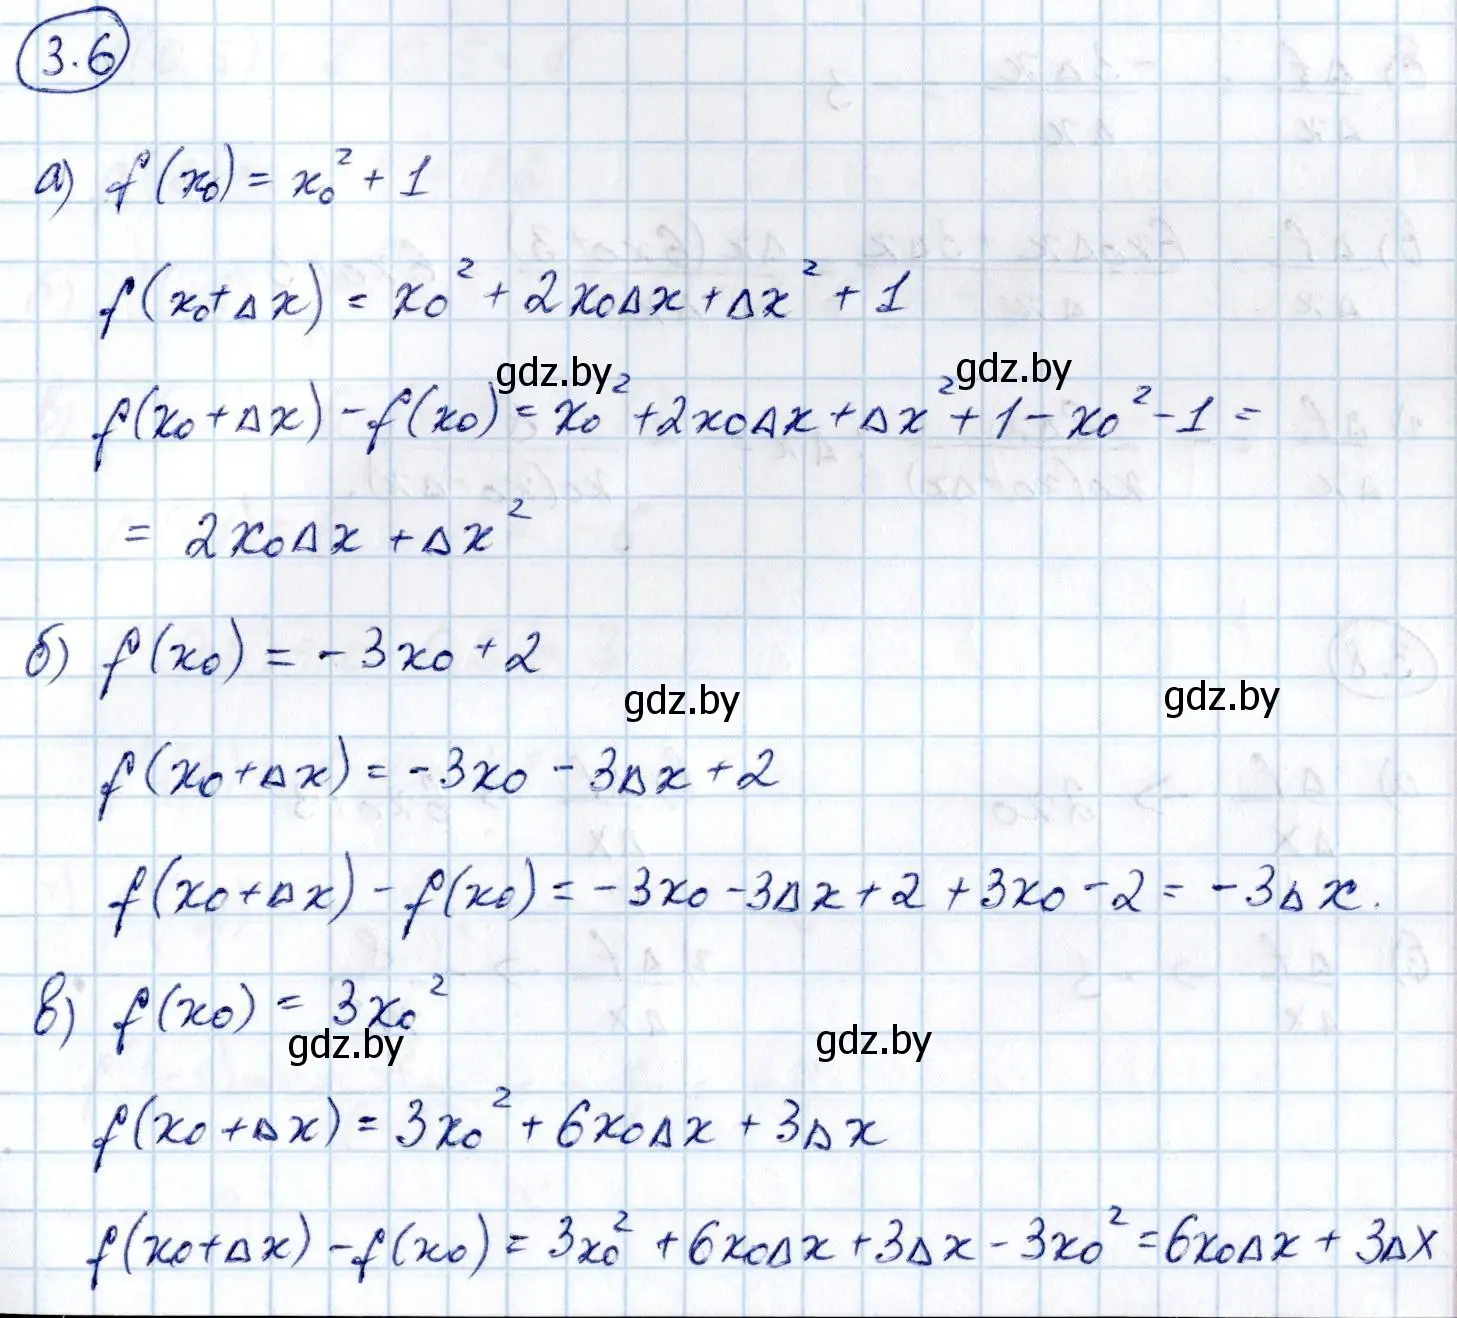 3.6
а) f(x₀) = x₀² + 1
f(x₀+Δx) = x₀² + 2x₀Δx + Δx² + 1
gdz.by gdz.by
f(x₀+Δx) - f(x₀) = x₀² + 2x₀Δx + Δx² + 1 - x₀² - 1 =
= 2x₀Δx + Δx²
б) f(x₀) = -3x₀ + 2
gdz.by gdz.by
f(x₀+Δx) = -3x₀ - 3Δx + 2
f(x₀+Δx) - f(x₀) = -3x₀ - 3Δx + 2 + 3x₀ - 2 = -3Δx.
в) f(x₀) = 3x₀²
gdz.by gdz.by
f(x₀+Δx) = 3x₀² + 6x₀Δx + 3Δx
f(x₀+Δx) - f(x₀) = 3x₀² + 6x₀Δx + 3Δx - 3x₀² = 6x₀Δx + 3Δx